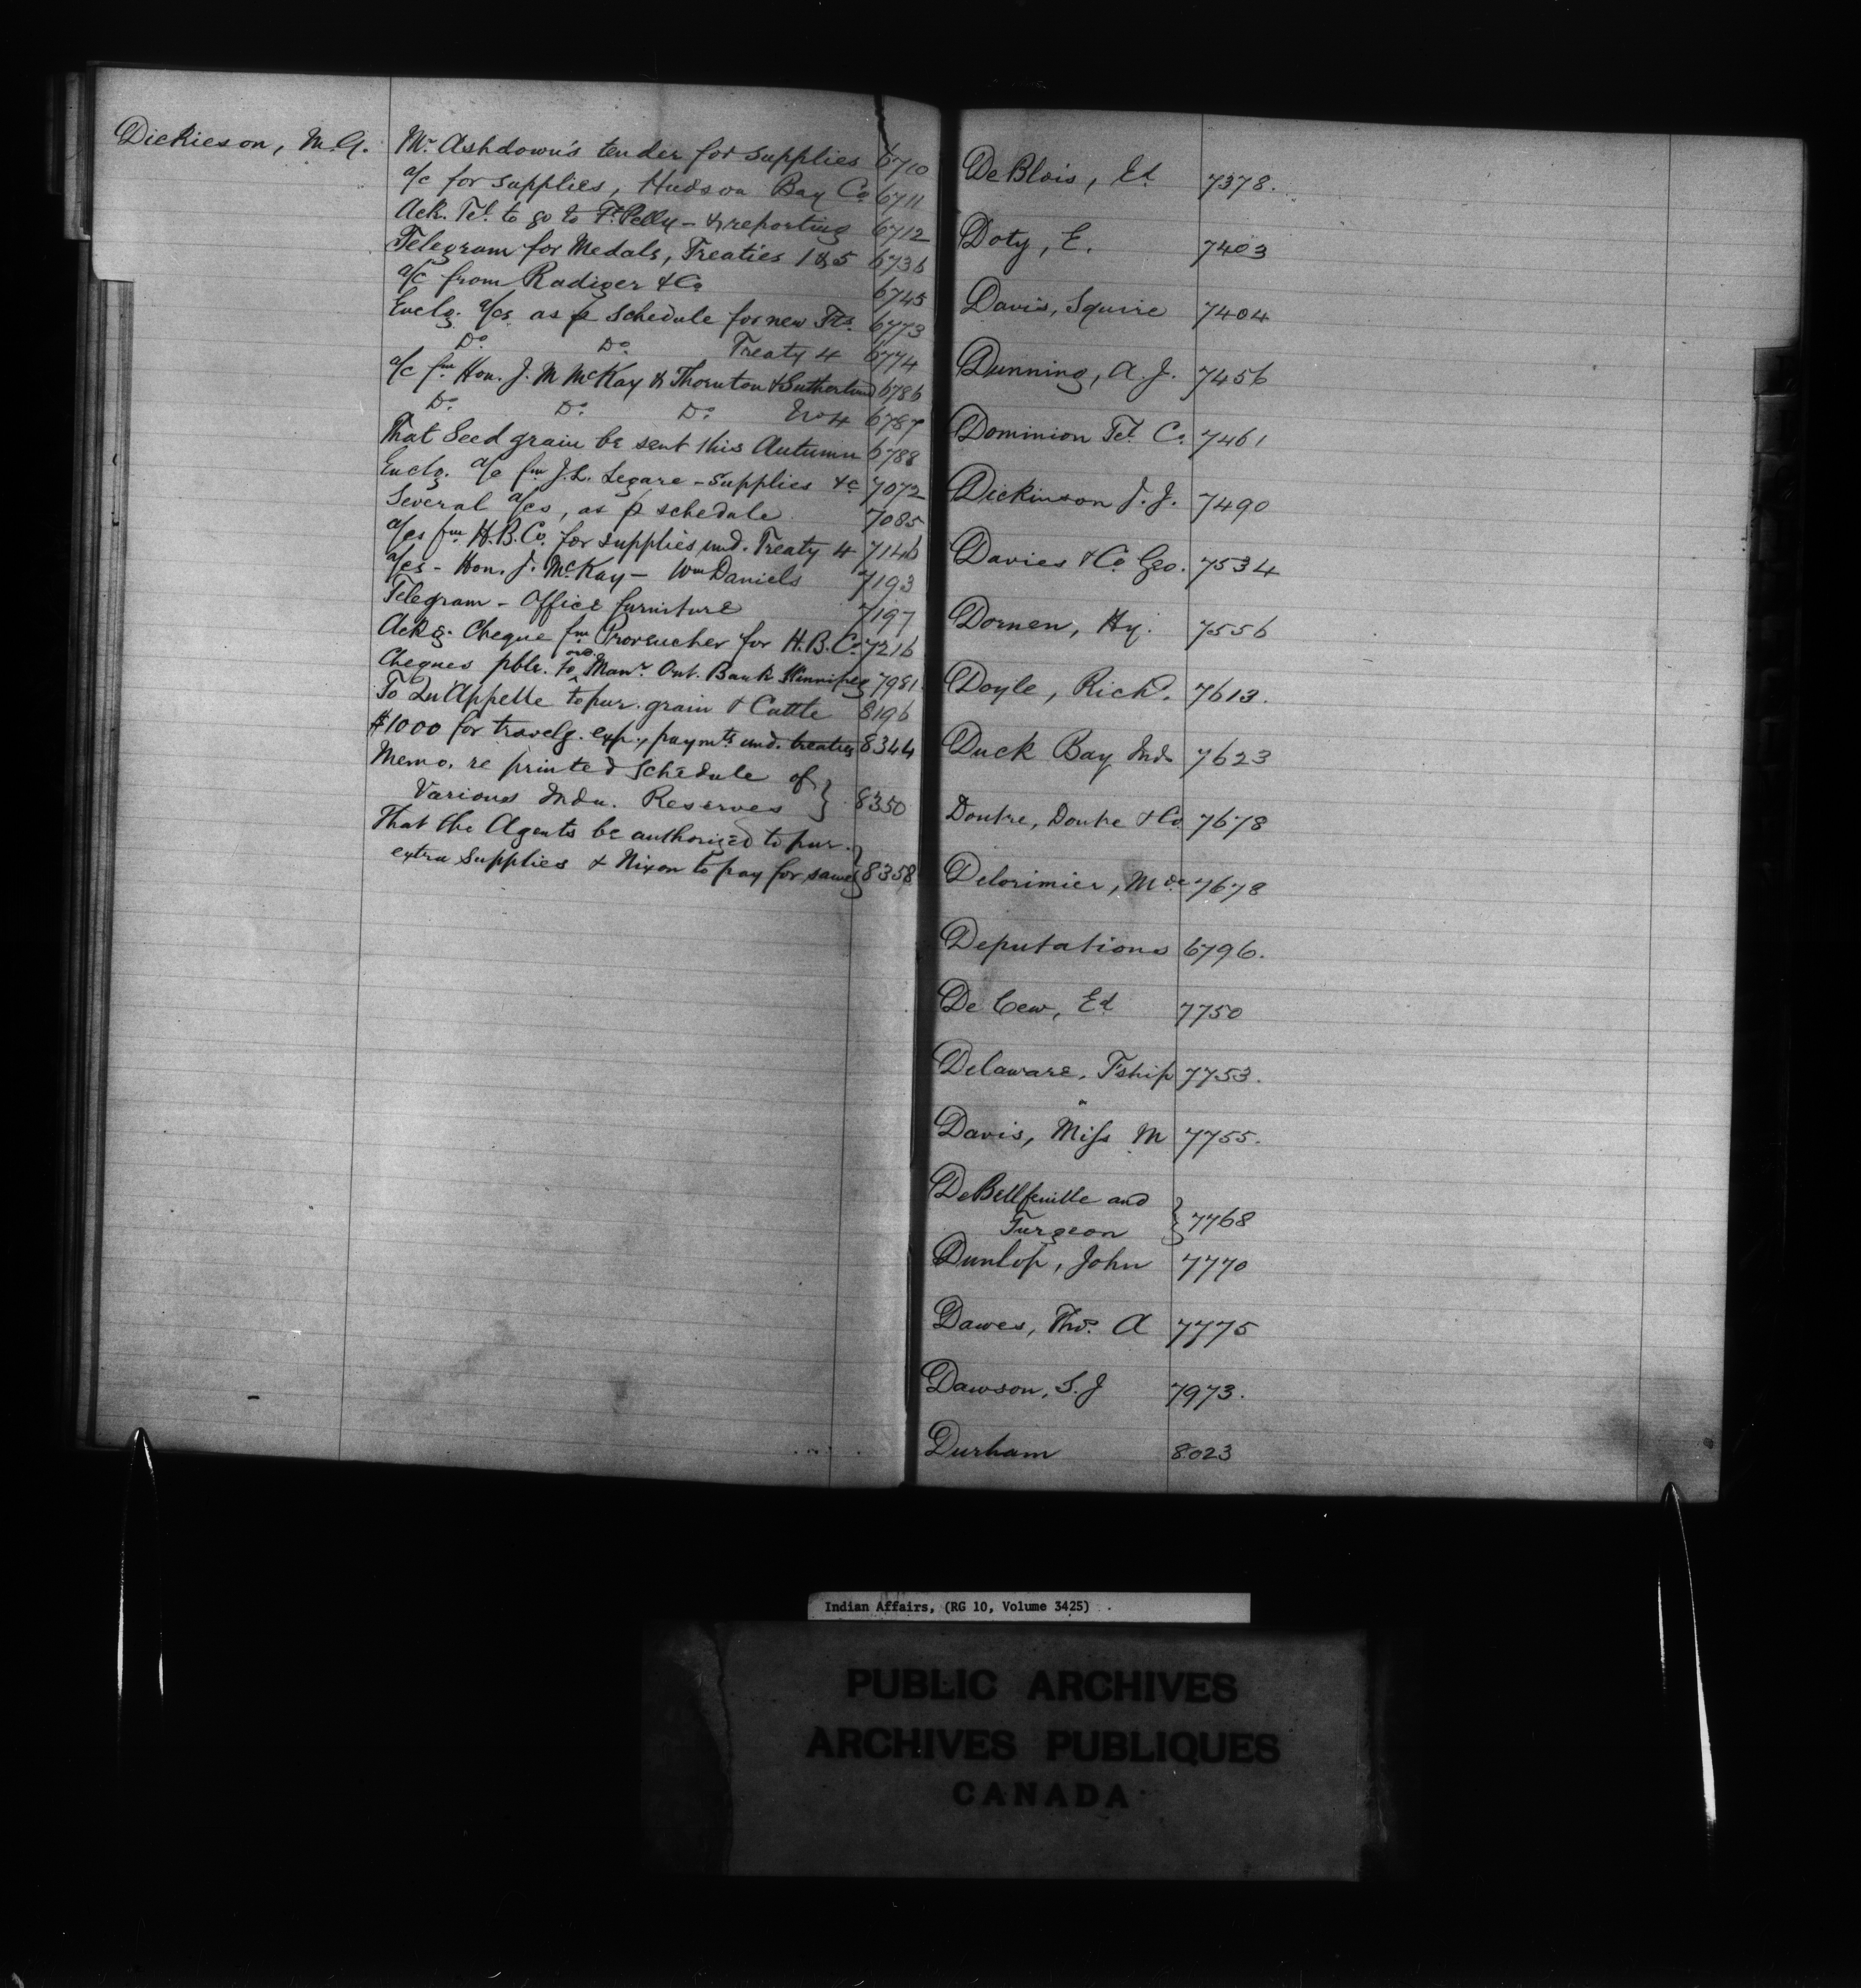 Dickieson, M.G. Mr. Ashdown's tender for supplies 6710
a/c for supplies, Hudson Bay Co 6711
Ack. Tel. to go to Ft. Pelly - & reporting 6712
Telegram for Medals, Treaties 1 & 5 6736
a/c from Radiger & Co 6745
Enclg. a/cs as p schedule for new Trs. 6773
Do. Do. Treaty 4 6774
a/c fm Hon. J. M McKay & Thornton & Sutherland 6786
Do. Do. Do. No 4 6787
That Seed grain be sent this Autumn 6788
Enclg. a/c fm J.L. Legare - Supplies &c 7072
Several a/cs, as p schedule 7085
a/cs fm H.B.Co. for supplies und. Treaty 4 7146
a/cs - Hon. J. McKay - Wm Daniels 7193
Telegram - Office furniture 7197
Ackg. Cheque fm Provencher for H.B.Co. 7216
Cheques pble. to Manr. Ont. Bank Winnipeg 7981
To Qu'Appelle to pur. grain & Cattle 8196
$1000 for travelg. exp., paymts und. treaties 8344
Memo. re printed Schedule of
Various Indn. Reserves } 8350
That the Agents be authorized to pur.
extra supplies & Nixon to pay for same } 8358
DeBlois, Ed 7378.
Doty, E. 7403
Davis, Squire 7404
Dunning, A.J. 7456
Dominion Tel. Co. 7461
Dickinson J.J. 7490
Davies & Co Geo. 7534
Dornen, Hy. 7556
Doyle, Richd. 7613.
Duck Bay Inds 7623
Doutre, Doutre & Co. 7678
Delorimier, Mde 7678
Deputations 6796.
De Cew, Ed 7750
Delaware, T'ship 7753.
Davis, Miss M 7755.
DeBellfeuille and
Turgeon } 7768
Dunlop, John 7770
Dawes, Thos. A 7775
Dawson, S.J 7973.
Durham 8023
Indian Affairs, (RG 10, Volume 3425)
PUBLIC ARCHIVES
ARCHIVES PUBLIQUES
CANADA